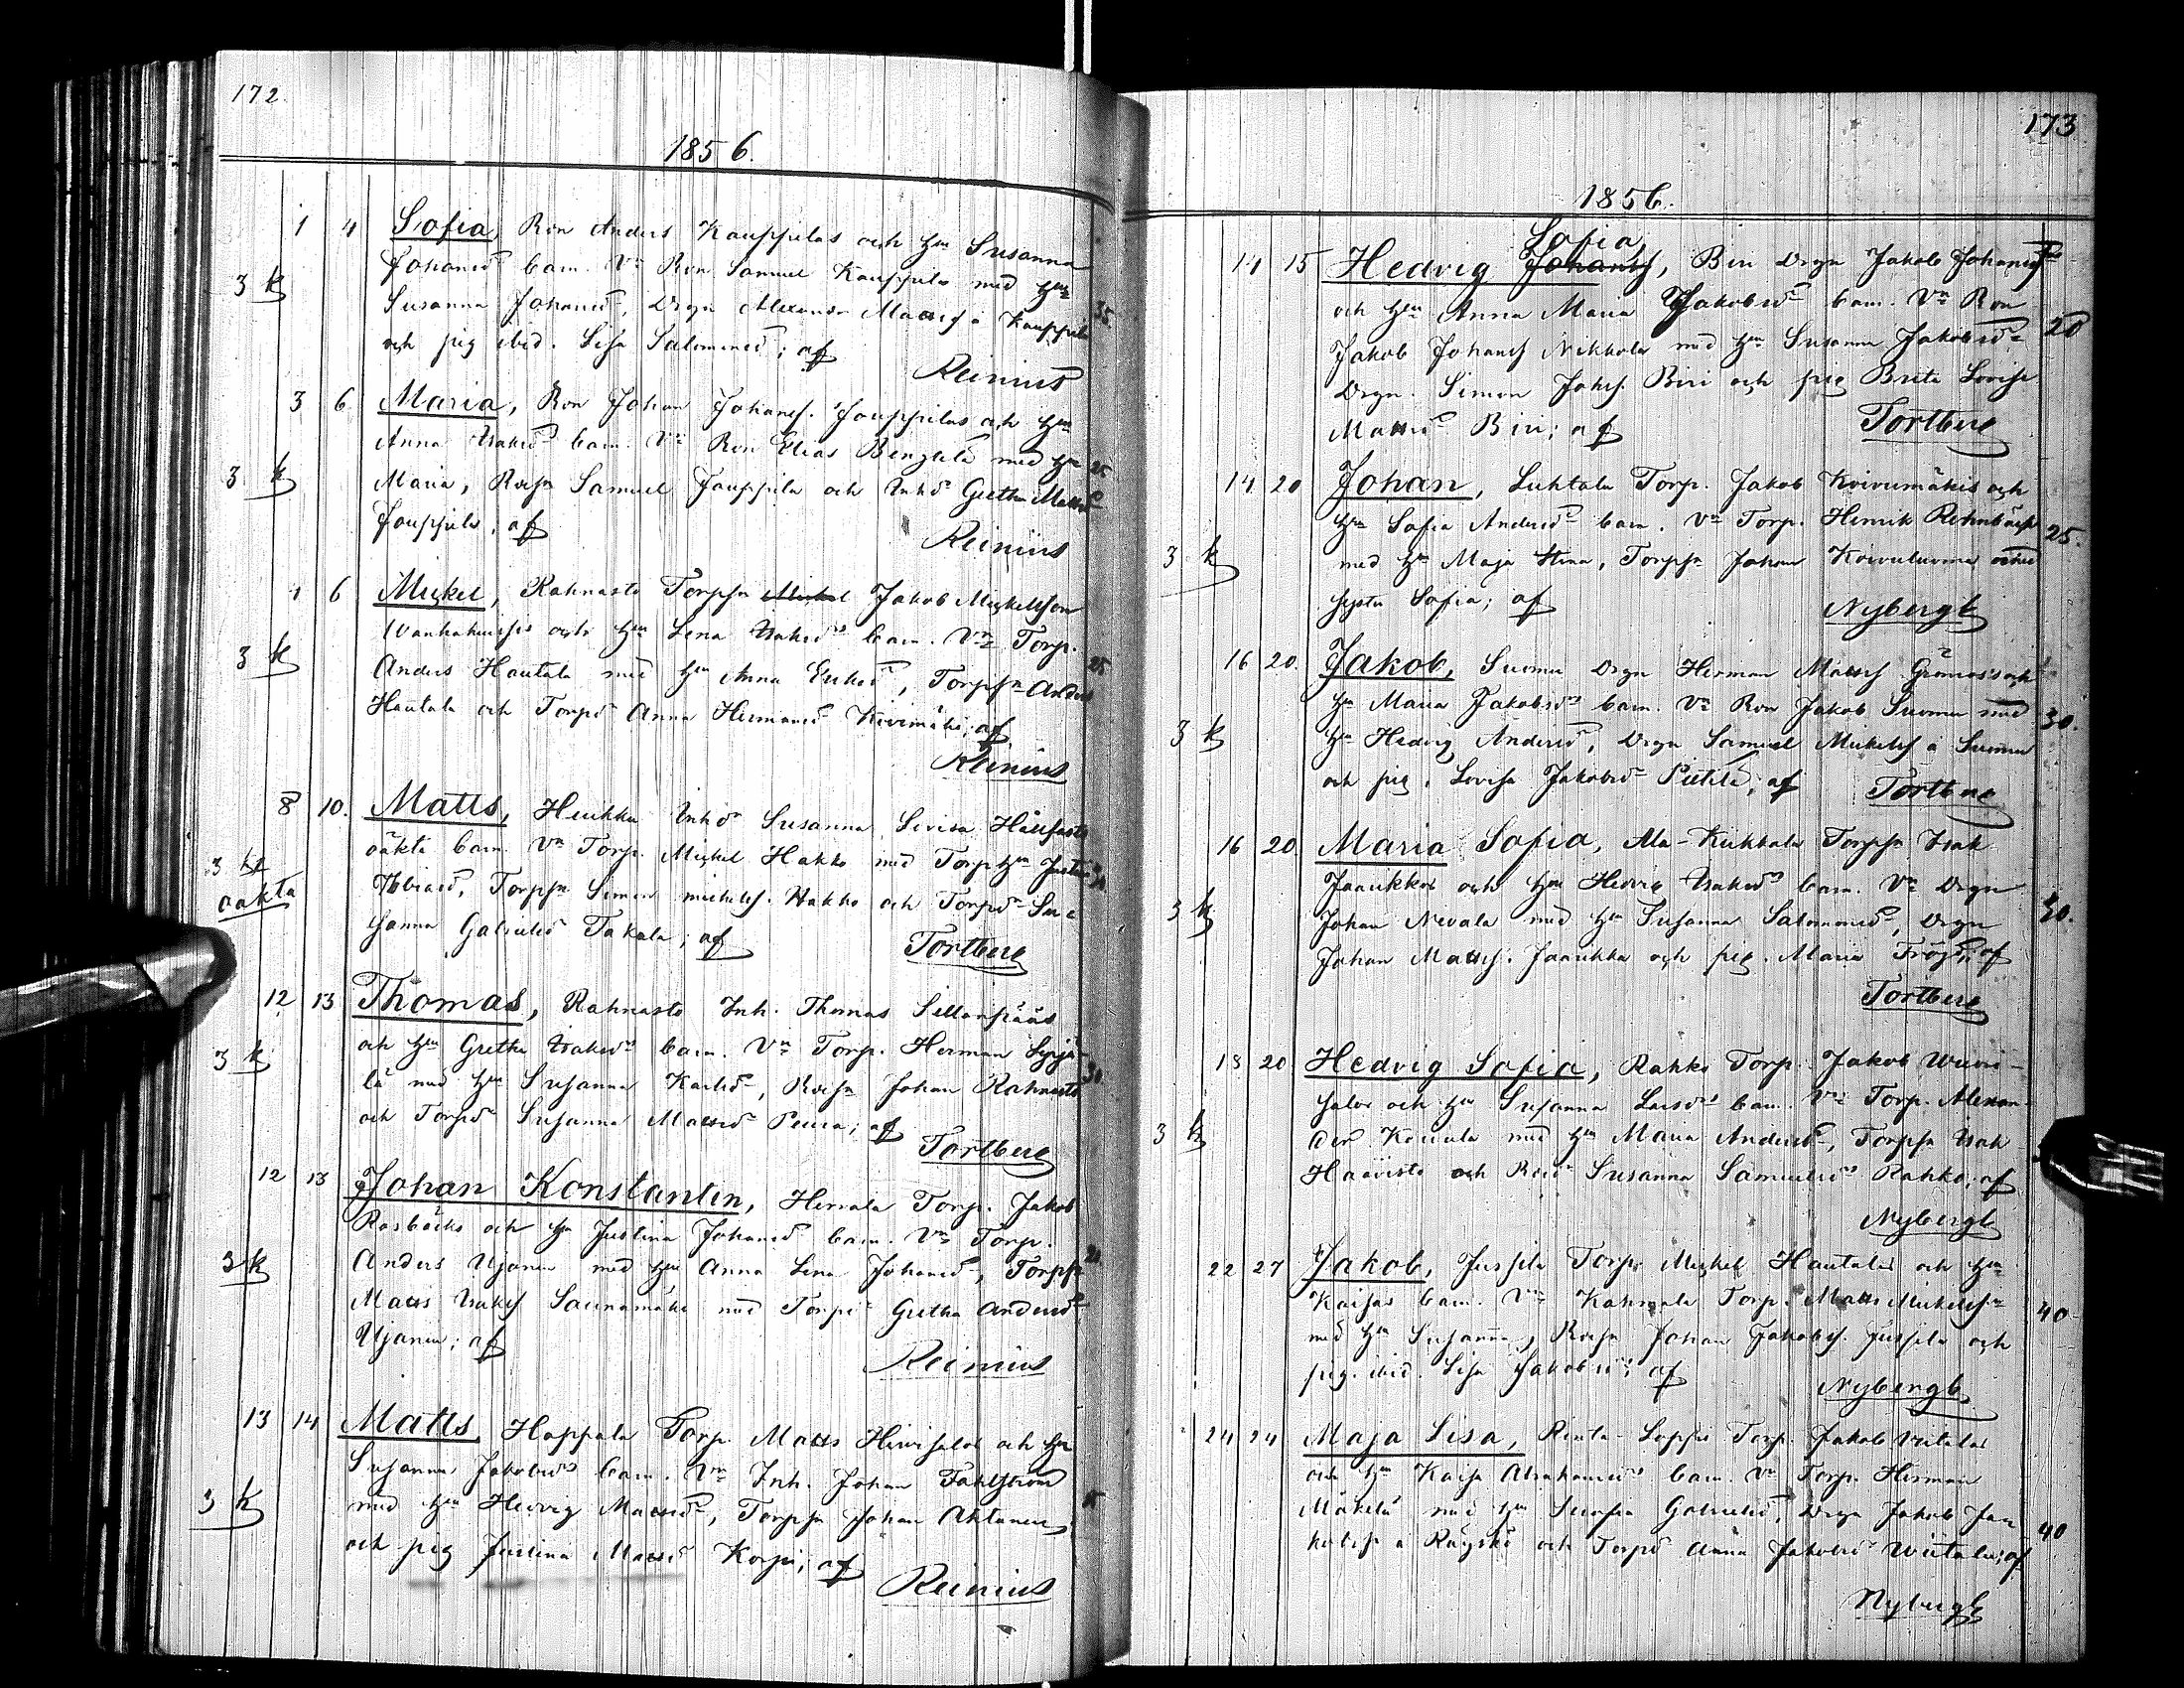 172.
1856.
1 4 Sofia, Bon Anders Kauppilas och hu Susanna
Johansd barn. Vn Bon Samuel Kauppila med hu
3 k Susanna Johansd, Drgn Alexander Mattsf a Kauppila 35.
och pig ibid. Lisa Salomonsd; af
Reinius
3 6 Maria, Bon Johan Johansf. Jouppilas och hu
Anna Isaksd barn. Vn Bon Elias Bengtila med hu 25
3 k Maria, Samuel Jouppila och Inhd Gretha Mattsd
Jouppila, af
Reinius
1 6 Mickel, Rahnasto Torpsn Mickel Jakob Mickelsson
och hu Lena Isaksd barn. Vn Torp.
3 k Anders Hautala med hu Anna Eriksd, Torpsn Anders 25
Hautala och Torpd Anna Hermansd Kivimäki; af
Reinius
8 10. Matts, Heikku Inhd Susanna Lovisa Hällfasts
oäkta barn. Vn Torp. Mickel Hakko med Torp hu Justina 30.
3 k
oäkta Tobiasd, Torpsn Simon Mickelsf. Hakko och Torpd Su-
sanna Gabrielsd Takala; af
Tortberg
12 13 Thomas, Rahnasto Inh. Thomas Sillanpääs
och hu Gretha Isaksd barn. Vn Torp. Herman Syrjä-
3 k lä med hu Susanna Karlsd, Johan Rahnasto 30.
och Torpd Susanna Mattsd Peura; af
Tortberg
12 13 Johan Konstantin, Herrala Torp. Jakob
Rosbäcks och hu Justina Johansd barn. Vn Torp.
3 k Anders Ujanen med hu Anna Lena Johansd, Torpsn
Matts Isaksf Saunamäki med Torpd Gretha Andersd
Ujanen; af
Reinius
13 14 Matts, Hoppala Torp. Matts Hirvisalos och hu
Susanna Jakobsd barn. Vn Inh. Johan Fahlström
3 k med hu Hedvig Mattsd, Torpsn Johan Ahtanen
och pig Justina Mattsd Korpi; af
Reinius
173
1856.
Sofia,
14 15 Hedvig Johansf, Biri Drgn Jakob Johansf
och hu Anna Maria Jakobsd barn. Vn Bon
Jakob Johansf Nikkola med hu Susanna Jakobsd 20
Drgn. Simon Johsf. Biri och pig Brita Lovisa
Mattsd Biri; af Tortberg
14 20 Johan, Luhtala Torp. Jakob Koivumäkis och
hu Sofia Andersd barn. Vn Torp. Henrik Rehnbäck 25.
3 k med hu Maja Stina, Torpsn Johan Koivuluoma och
syster Sofia; af Nybergh
16 20. Jakob, Suomu Drgn Herman Mattsf Grönroos och
hu Maria Jakobsd barn. Vn Bon Jakob Suomu med 30.
3 k hu Hedvig Andersd, Drgn Samuel Mickelsf a Suomu
och pig. Lovisa Jakobsd Pietilä; af Tortberg
16 20. Maria Sofia, Ala-Kiikkala Torpsn Isak
Jaakkos och hu Hedvig Isaksd barn. Vn Drgn
3 k Johan Nevala med hu Susanna Salomonsd, Drgn 30.
Johan Mattsf. Jaakkha och pig. Maria af
Tortberg
18 20 Hedvig Sofia, Rahko Torp. Jakob Wuori-
salos och hu Susanna Larsd barn. Vn Torp. Alexan-
3 k der Koivula med hu Maria Andersd, Torpsn Isak
Haavisto och Susanna Samuelsd Rahko; af
Nybergh
22 27 Jakob, Jussila Torp. Mickel Hautalas och hu
Kaisas barn. Vn Torp. Matts Mickelsson 40
med hu Susanna, Johan Jakobsf. Jussila och
pig. ibid. Lisa Jakobsd; af
Nybergh
24 24 Maja Lisa, Rinta-Loppi Torp. Jakob Wiitalas
och hu Kaisa Abrahamsd barn. Vn Torp. Herman
Mäkelä med hu Serafia Gabrielsd, Drgn Jakob Jaa
kolsf a Räyskö och Torpd Anna Jakobsd Wiitala; af 40
Nybergh